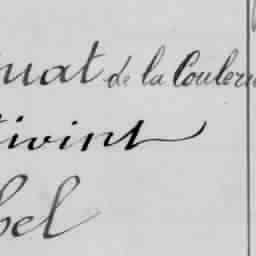 uat de la Couler
ivint
bel